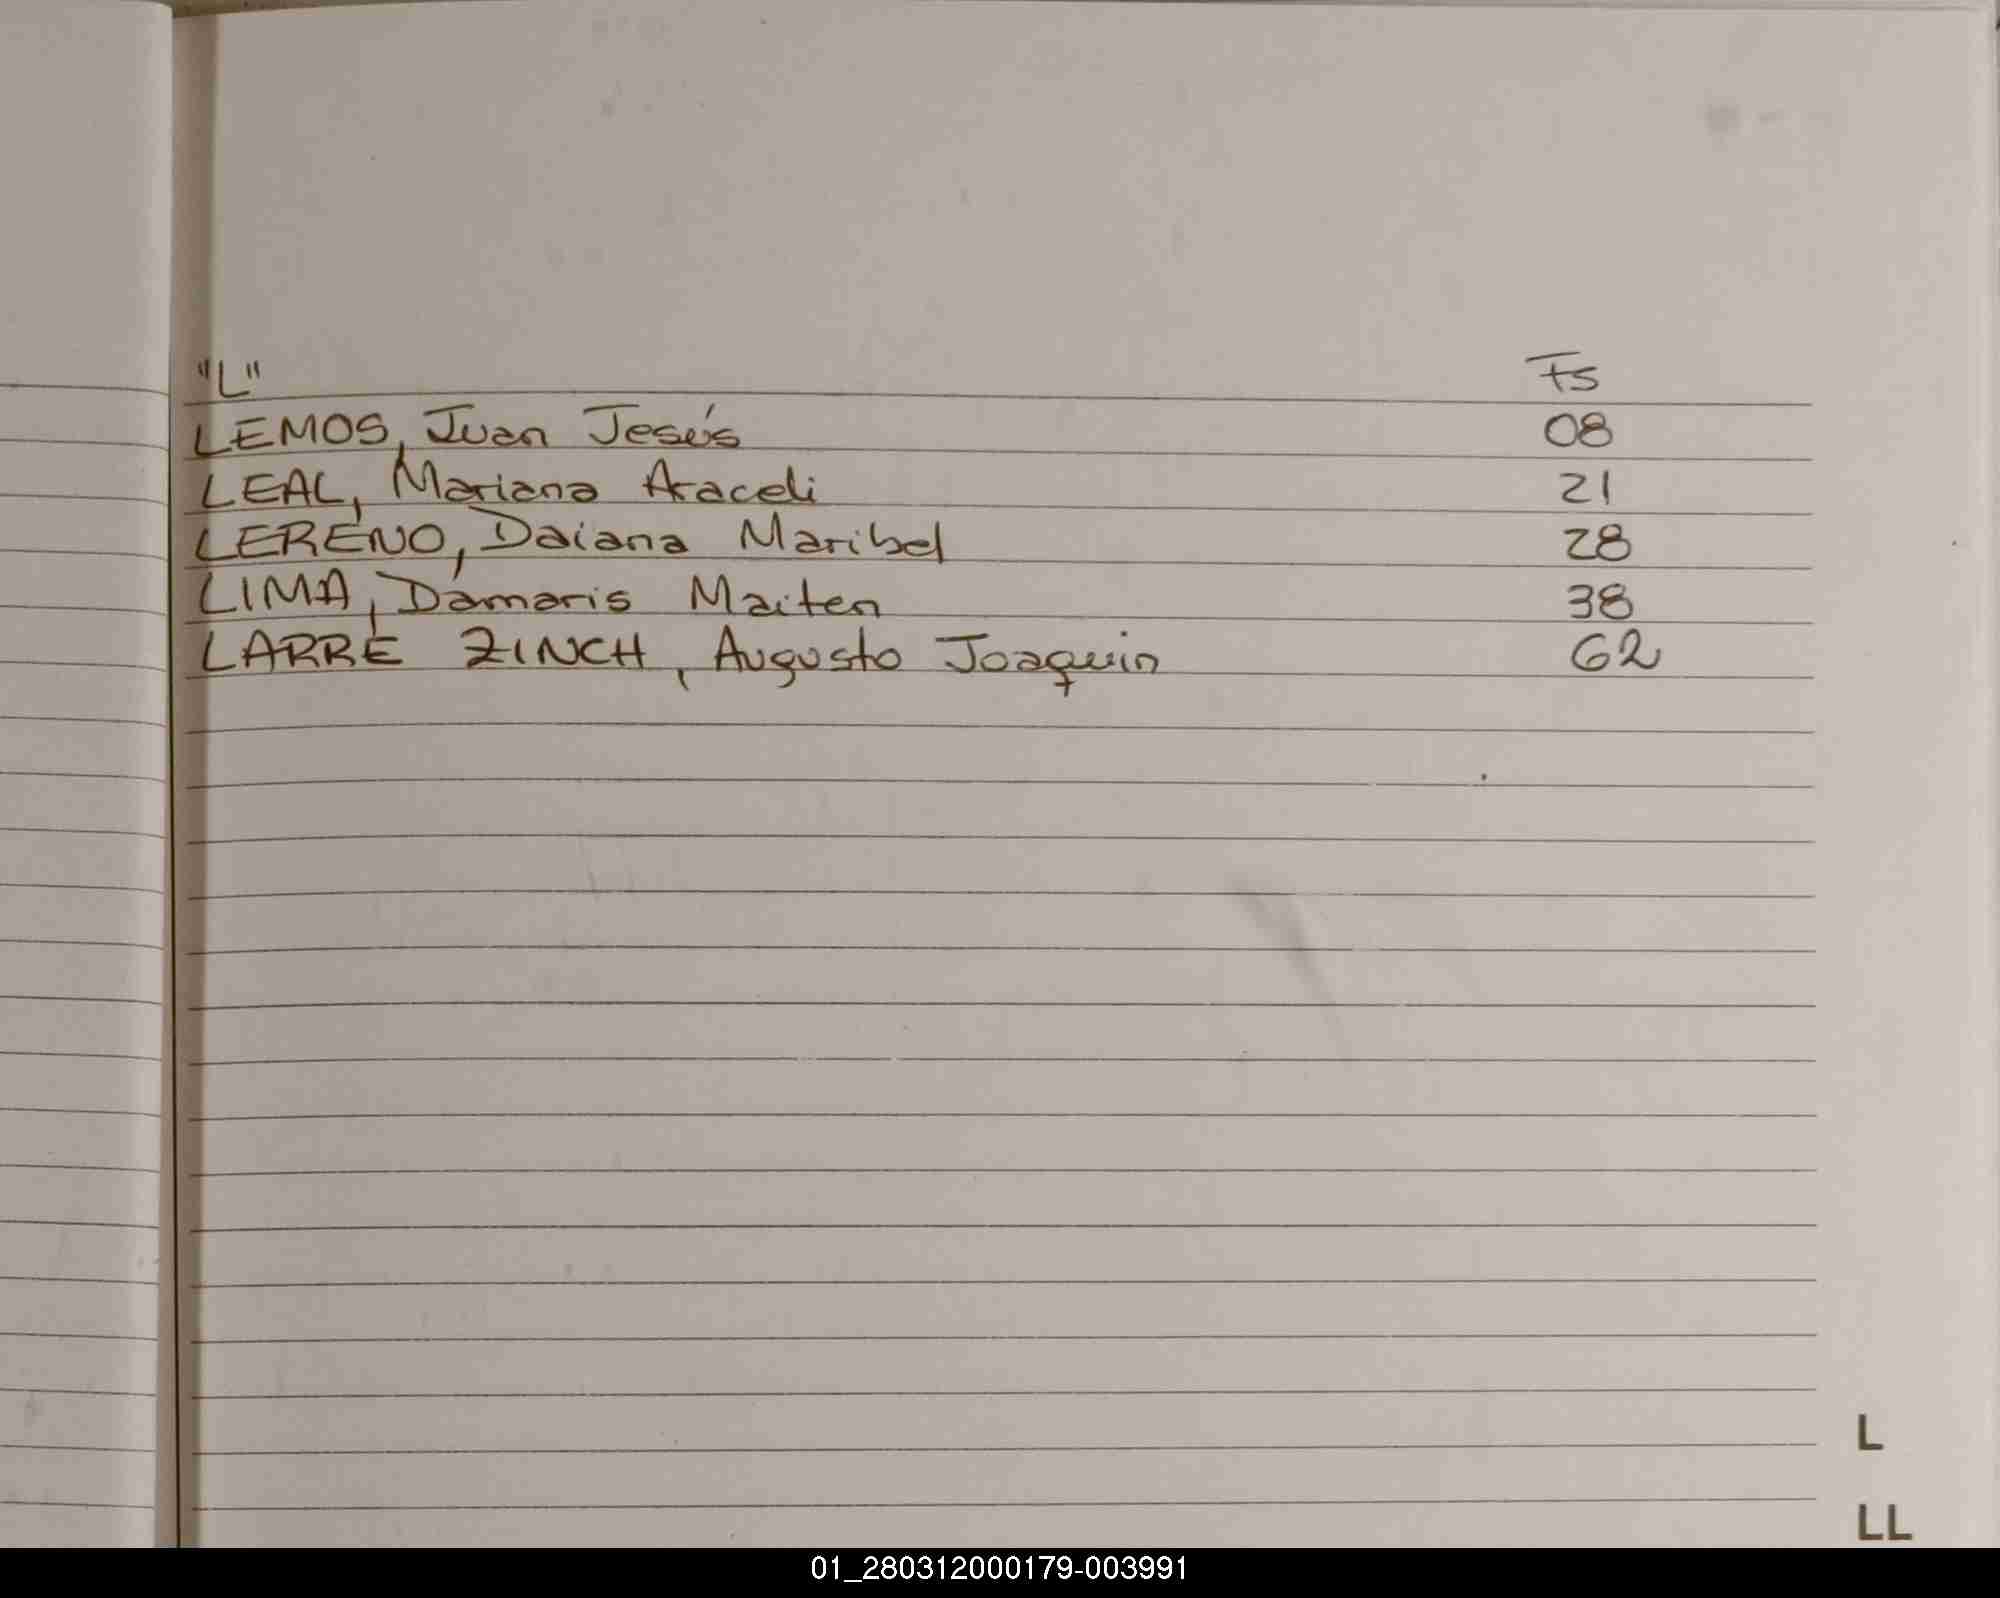 "L" Fs
LEMOS, Juan Jesús 08
LEAL, Mariana Araceli 21
LERENO, Daiana Maribel 28
LIMA, Damaris Maiten 38
LARRE ZINCH, Augusto Joaquin 62
L
LL
01_280312000179-003991